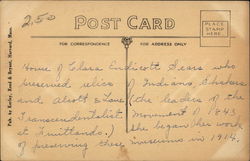 2.50
POST CARD
PLACE
STAMP
HERE
FOR CORRESPONDENCE
FOR ADDRESS ONLY
Home of Clara Endicott Sears who
preserved relics of Indians, Shakers
and Alcott & Lane (the leaders of the
Transcendentalist Movement of 1843
at Fruitlands.) She began her work
of preserving these museums in 1914.
Pub. by Reed & Bryant, Harvard, Mass.